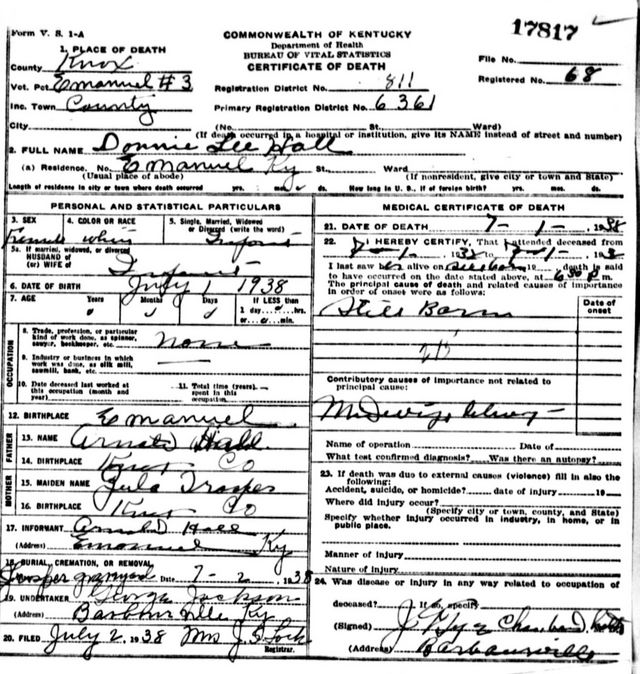 Form V. S. 1-A
17817
COMMONWEALTH OF KENTUCKY
Department of Health
BUREAU OF VITAL STATISTICS
CERTIFICATE OF DEATH
1. PLACE OF DEATH
County Knox
Vot. Pct. Emanuel #3
Inc. Town County
City
Registration District No. 811
Primary Registration District No. 6361
File No.
Registered No. 68
(No. St. Ward)
(If death occurred in a hospital or institution, give its NAME instead of street and number)
2. FULL NAME Donnie Lee Hall
(a) Residence. No. Emanuel Ky St., Ward
(Usual place of abode) (If nonresident, give city or town and State)
Length of residence in city or town where death occurred yrs. mos. ds. How long in U. S., if of foreign birth? yrs. mos. ds.
PERSONAL AND STATISTICAL PARTICULARS
3. SEX 4. COLOR OR RACE 5. Single, Married, Widowed
or Divorced (write the word)
Female White Infant
5a. If married, widowed, or divorced
HUSBAND of
(or) WIFE of Infant
6. DATE OF BIRTH July 1 1938
7. AGE Years Months Days If LESS than
0 0 0 1 day hrs.
or min.
OCCUPATION
8. Trade, profession, or particular
kind of work done, as spinner,
sawyer, bookkeeper, etc. None
9. Industry or business in which
work was done, as silk mill,
sawmill, bank, etc.
10. Date deceased last worked at
this occupation (month and
year)
11. Total time (years)
spent in this
occupation
12. BIRTHPLACE Emanuel
FATHER
13. NAME Hall
14. BIRTHPLACE Knox Co
MOTHER
15. MAIDEN NAME Trosper
16. BIRTHPLACE Knox Co
17. INFORMANT Arnold Hall
(Address) Emanuel Ky
18. BURIAL, CREMATION, OR REMOVAL
Trosper graveyard Date 7-2 1938
19. UNDERTAKER George Jackson
(Address) Barbourville Ky
20. FILED July 2, 1938 Mrs J. S. Lock
Registrar.
MEDICAL CERTIFICATE OF DEATH
21. DATE OF DEATH 7-1-, 1938
22. I HEREBY CERTIFY, That I attended deceased from
I last saw alive on 19 death is said
to have occurred on the date stated above, at m.
The principal cause of death and related causes of importance
in order of onset were as follows:
Date of
onset
Still Born
Contributory causes of importance not related to
principal cause:
Name of operation Date of
What test confirmed diagnosis? Was there an autopsy?
23. If death was due to external causes (violence) fill in also the
following:
Accident, suicide, or homicide? date of injury 19
Where did injury occur?
(Specify city or town, county, and State)
Specify whether injury occurred in industry, in home, or in
public place.
Manner of injury
Nature of injury
24. Was disease or injury in any way related to occupation of
deceased? If so, specify
(Signed)
(Address) Barbourville